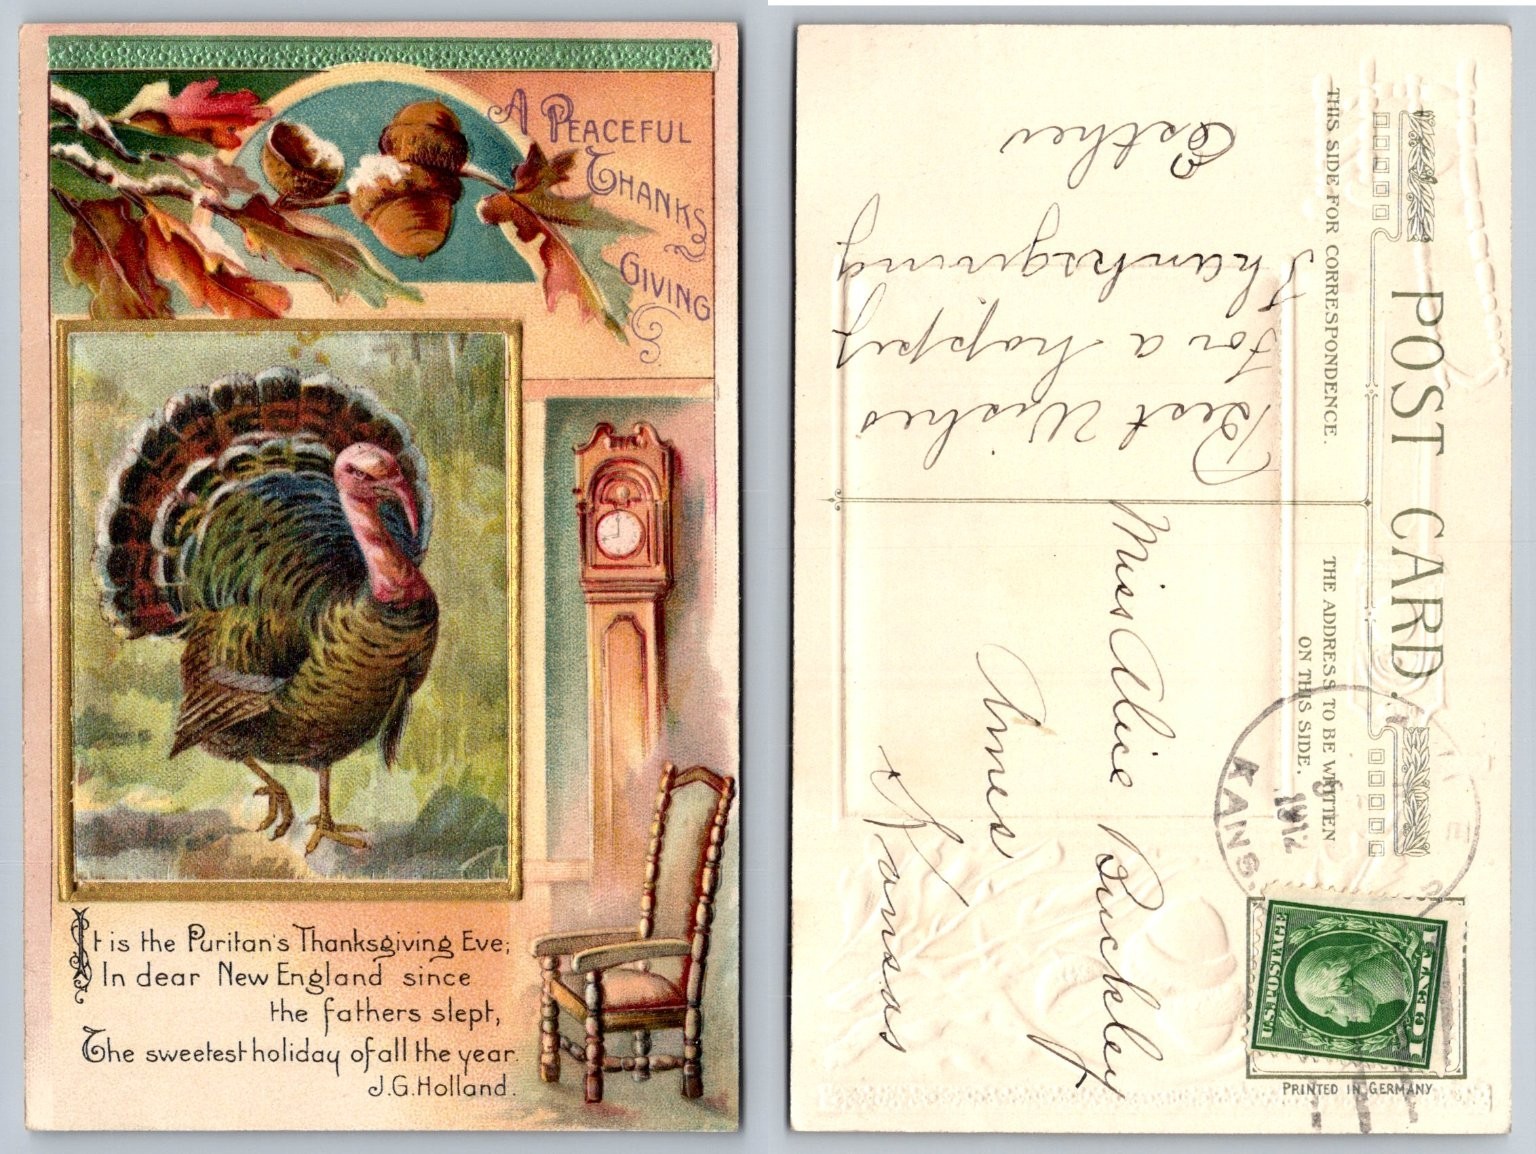 A PEACEFUL
THANKS
GIVING
It is the Puritan's Thanksgiving Eve;
In dear New England since
the fathers slept,
The sweetest holiday of all the year.
J.G. Holland.
POST CARD.
THIS SIDE FOR CORRESPONDENCE.
THE ADDRESS TO BE WRITTEN
ON THIS SIDE.
Best Wishes
for a happy
Thanksgiving
Esther
Miss Alice Buckley
Ames
Kansas
KANS.
1912
U.S. POSTAGE
1 CENT 1
PRINTED IN GERMANY